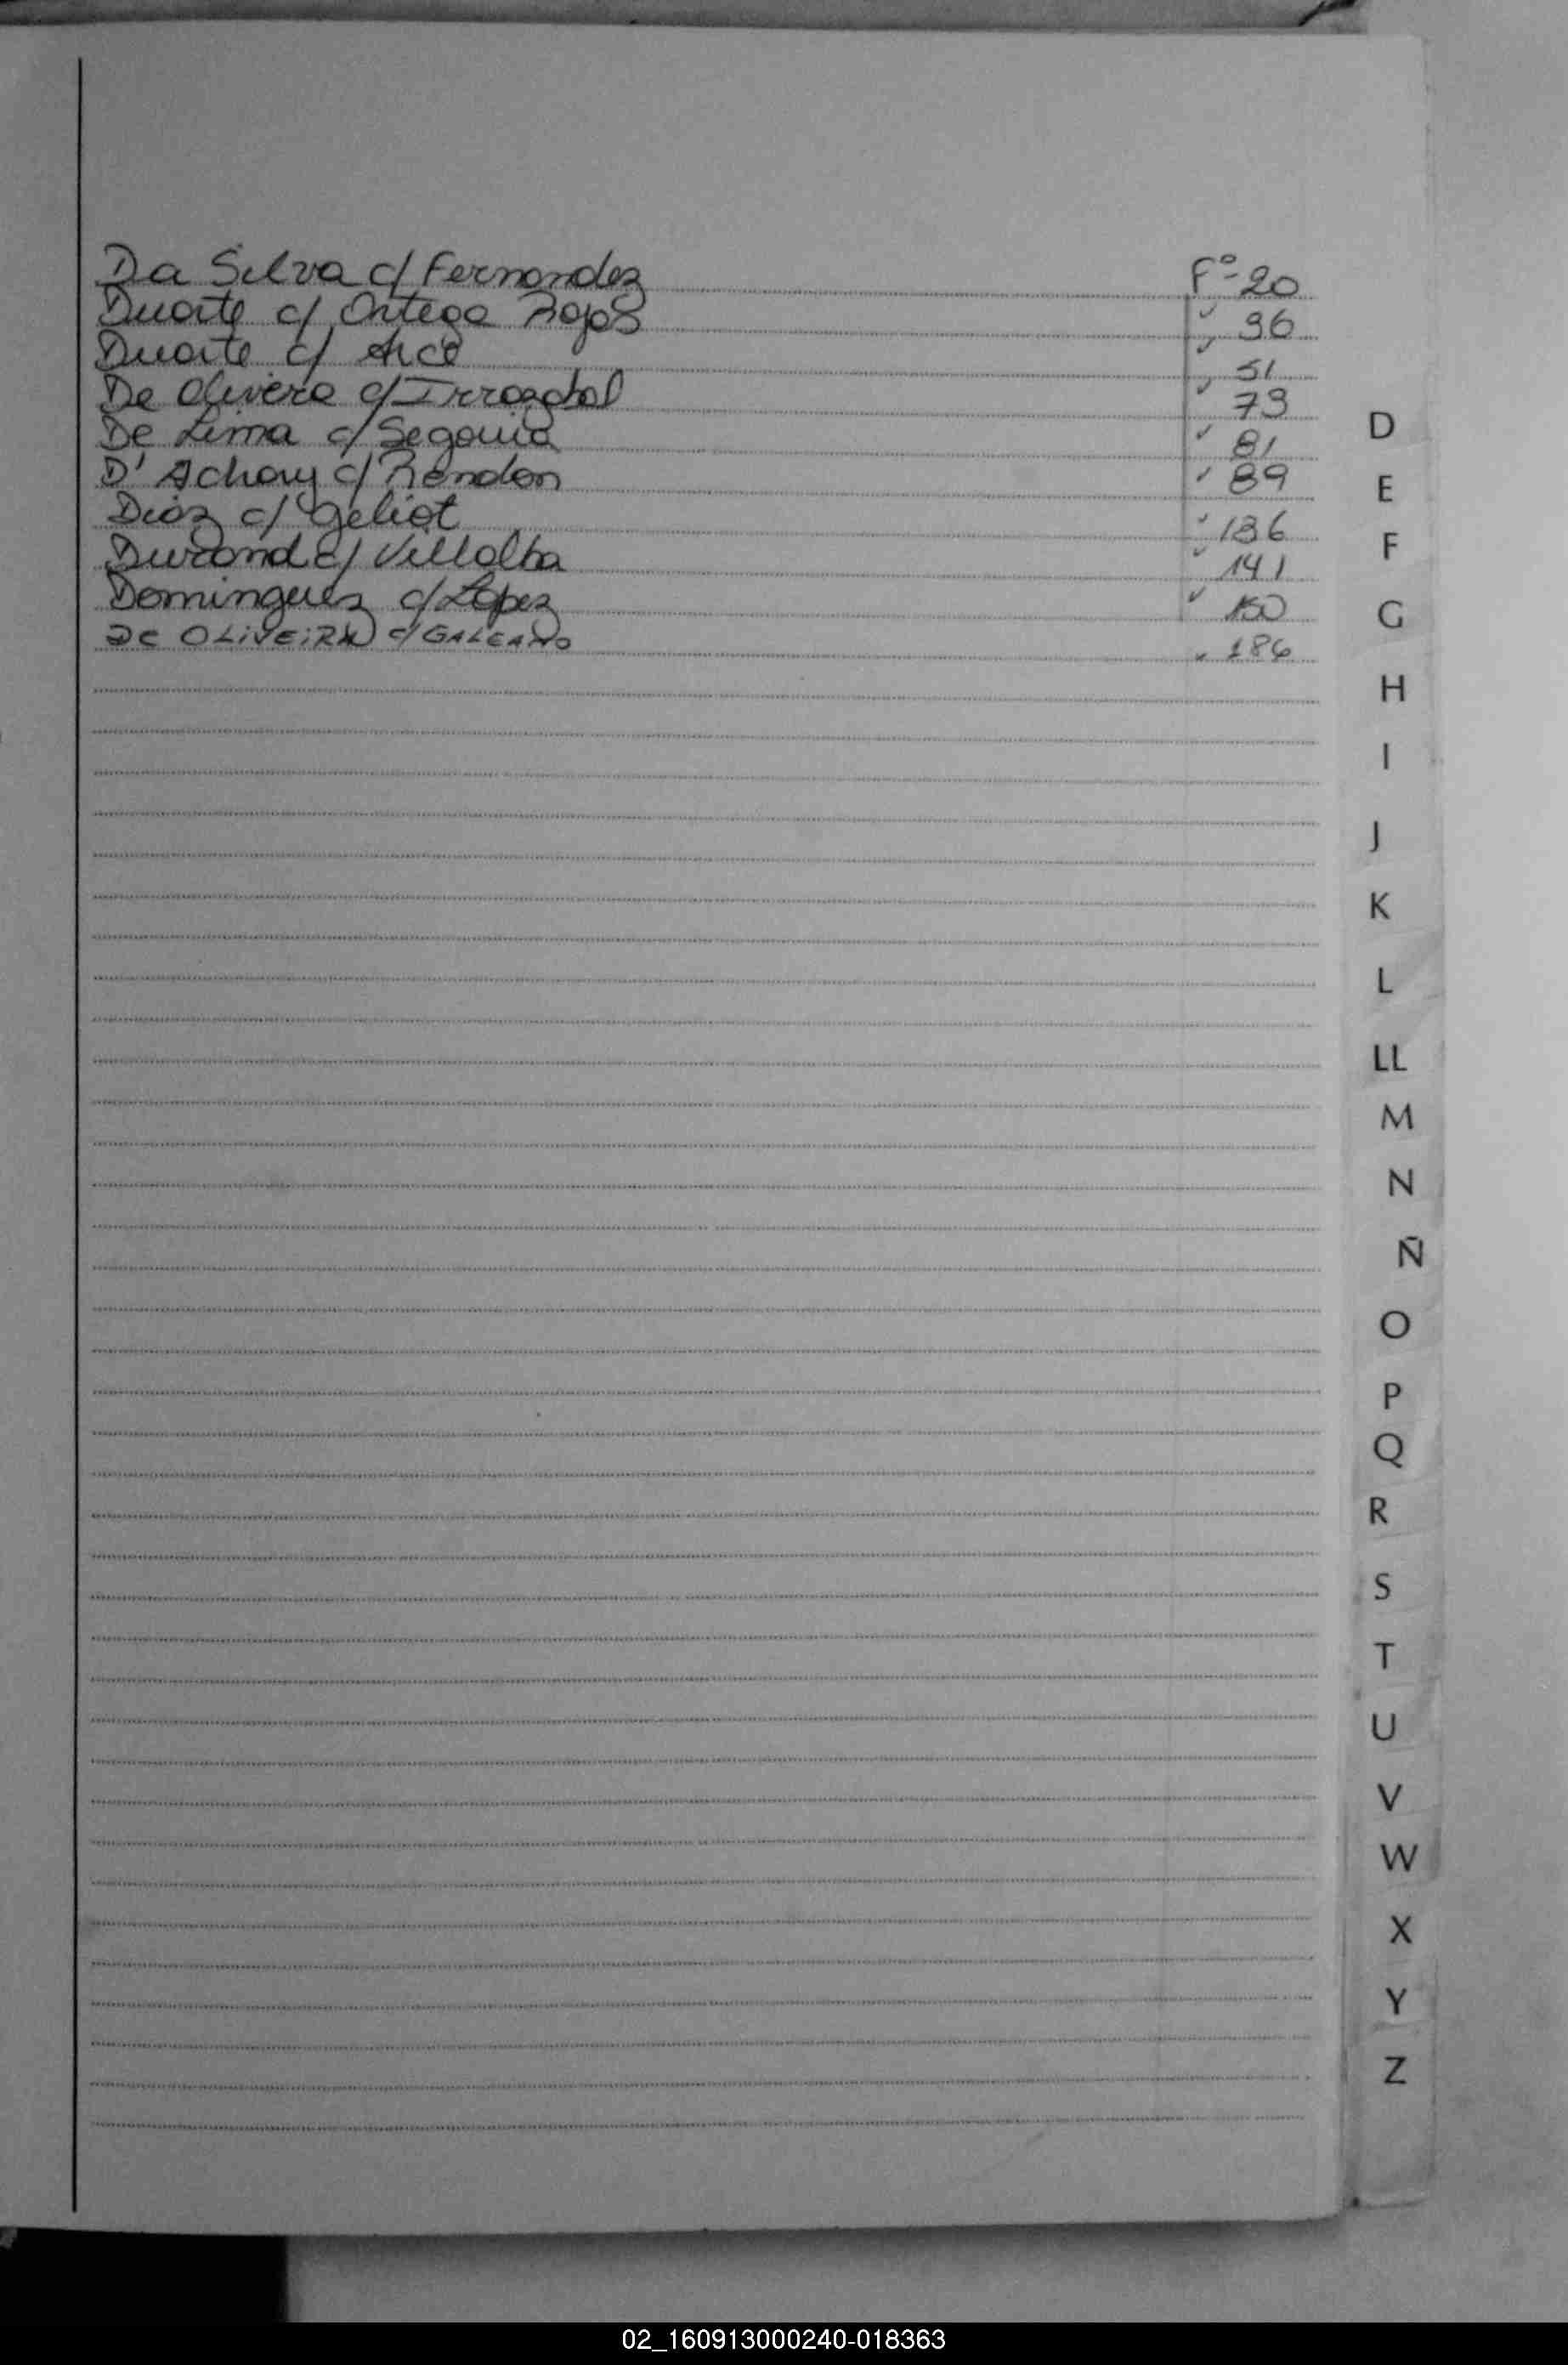 Da Silva c/ Fernandez Fº 20
Duarte c/ Ortega Rojas " 36
Duarte c/ Arce " 51
De Olivera c/ Irrazabal " 73
De Lima c/ Segovia " 81
D' Achary c/ Rendon " 89
Diaz c/ Geliot " 136
Durand c/ Villalba " 141
Dominguez c/ Lopez " 150
De OLiVEiRA c/ GALEANO " 186
D
E
F
G
H
I
J
K
L
LL
M
N
Ñ
O
P
Q
R
S
T
U
V
W
X
Y
Z
02_160913000240-018363